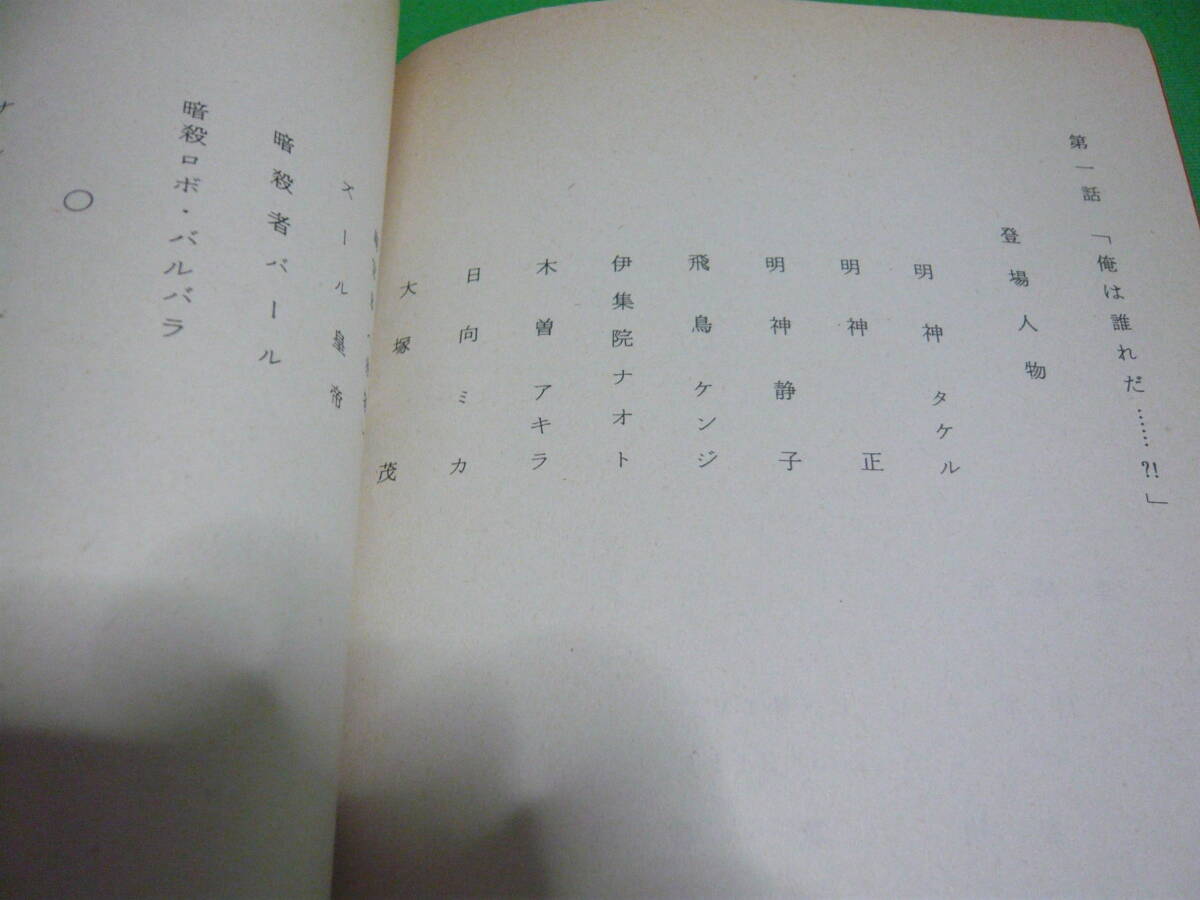 第一話 「俺は誰れだ……?!」
登場人物
明神 タケル
明神 正
明神 静子
飛鳥 ケンジ
伊集院ナオト
木曽アキラ
日向ミカ
大塚 茂
皇帝
暗殺者バール
暗殺ロボ・バルバラ
○